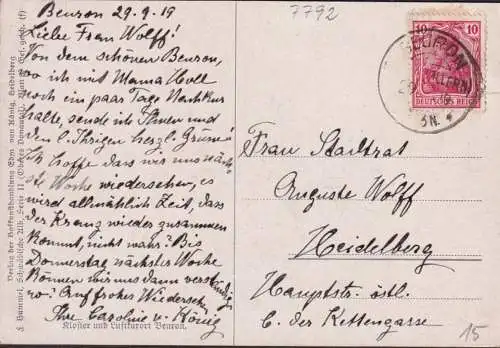 7792
Beuron 29.9.19
Liebe Frau Wolff!
Von dem schönen Beuron,
wo ich mit Mama
noch ein paar Tage Nachkur
halte, sende ich Ihnen und
den l. Ihrigen herzl. Grüße!
Ich hoffe dass wir uns näch-
ste Woche wiedersehen, es
wird allmählich Zeit, dass
der Kranz wieder zusammen
kommt, nicht wahr? Bis
Donnerstag nächster Woche
können wir uns dann verständigen
wo? Auf frohes Wiedersehn
Ihre Caroline v. König
Kloster und Luftkurort Beuron.
Verlag der Hofkunsthandlung Edm. von König, Heidelberg
F. Hummel, Schwäbische Alb, Serie II (Oberes Donautal). Ges. gesch. (f)
10
BEURON
3N. *
DEUTSCHES REICH
Frau Stadtrat
Auguste Wolff
Heidelberg
Hauptstr. östl.
b. der Kettengasse
15